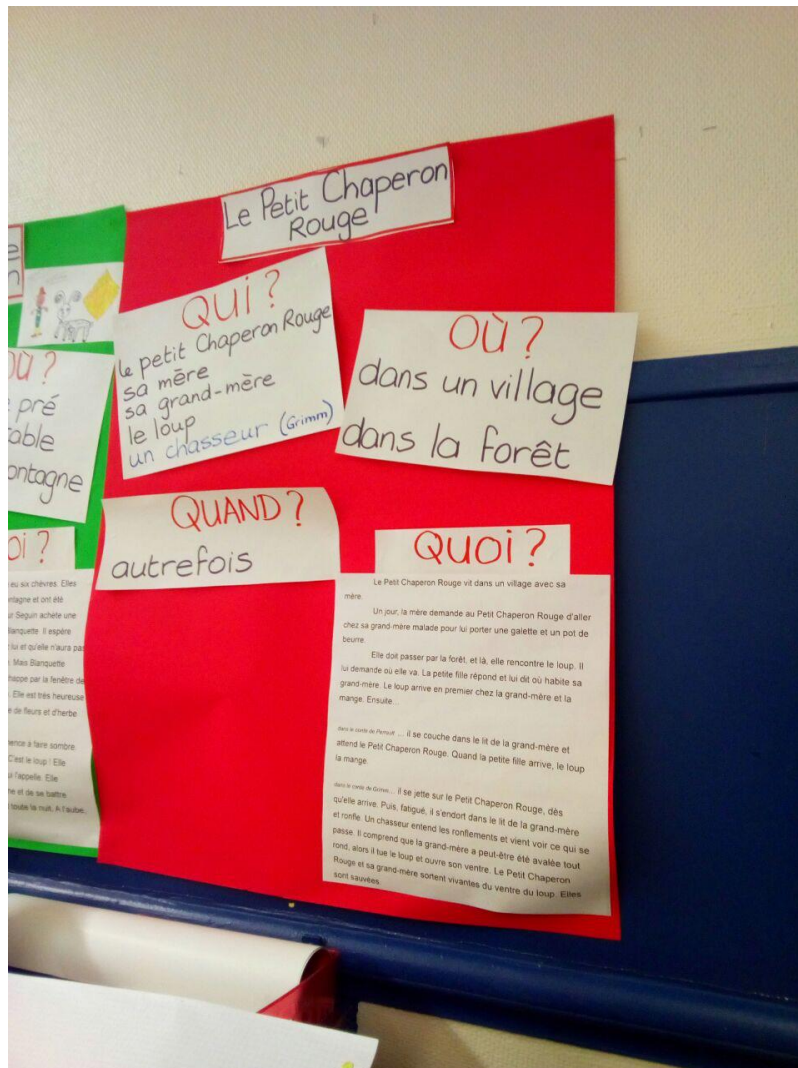 Le Petit Chaperon
Rouge
QUI ?
le petit Chaperon Rouge
sa mère
sa grand-mère
le loup
un chasseur (Grimm)
OÙ ?
dans un village
dans la forêt
QUAND ?
autrefois
QUOI ?
Le Petit Chaperon Rouge vit dans un village avec sa
mère.
Un jour, la mère demande au Petit Chaperon Rouge d'aller
chez sa grand-mère malade pour lui porter une galette et un pot de
beurre.
Elle doit passer par la forêt, et là, elle rencontre le loup. Il
lui demande où elle va. La petite fille répond et lui dit où habite sa
grand-mère. Le loup arrive en premier chez la grand-mère et la
mange. Ensuite...
dans le conte de Perrault ... il se couche dans le lit de la grand-mère et
attend le Petit Chaperon Rouge. Quand la petite fille arrive, le loup
la mange.
dans le conte de Grimm... il se jette sur le Petit Chaperon Rouge, dès
qu'elle arrive. Puis, fatigué, il s'endort dans le lit de la grand-mère
et ronfle. Un chasseur entend les ronflements et vient voir ce qui se
passe. Il comprend que la grand-mère a peut-être été avalée tout
rond, alors il tue le loup et ouvre son ventre. Le Petit Chaperon
Rouge et sa grand-mère sortent vivantes du ventre du loup. Elles
sont sauvées.
OÙ ?
pré
ontagne
oi ?
eu six chèvres. Elles
ntagne et ont été
ur Seguin achète une
Blanquette. Il espère
lui et qu'elle n'aura pas
. Mais Blanquette
happe par la fenêtre de
. Elle est très heureuse
e de fleurs et d'herbe
mence à faire sombre.
C'est le loup ! Elle
ui l'appelle. Elle
he et de se battre
toute la nuit. A l'aube,